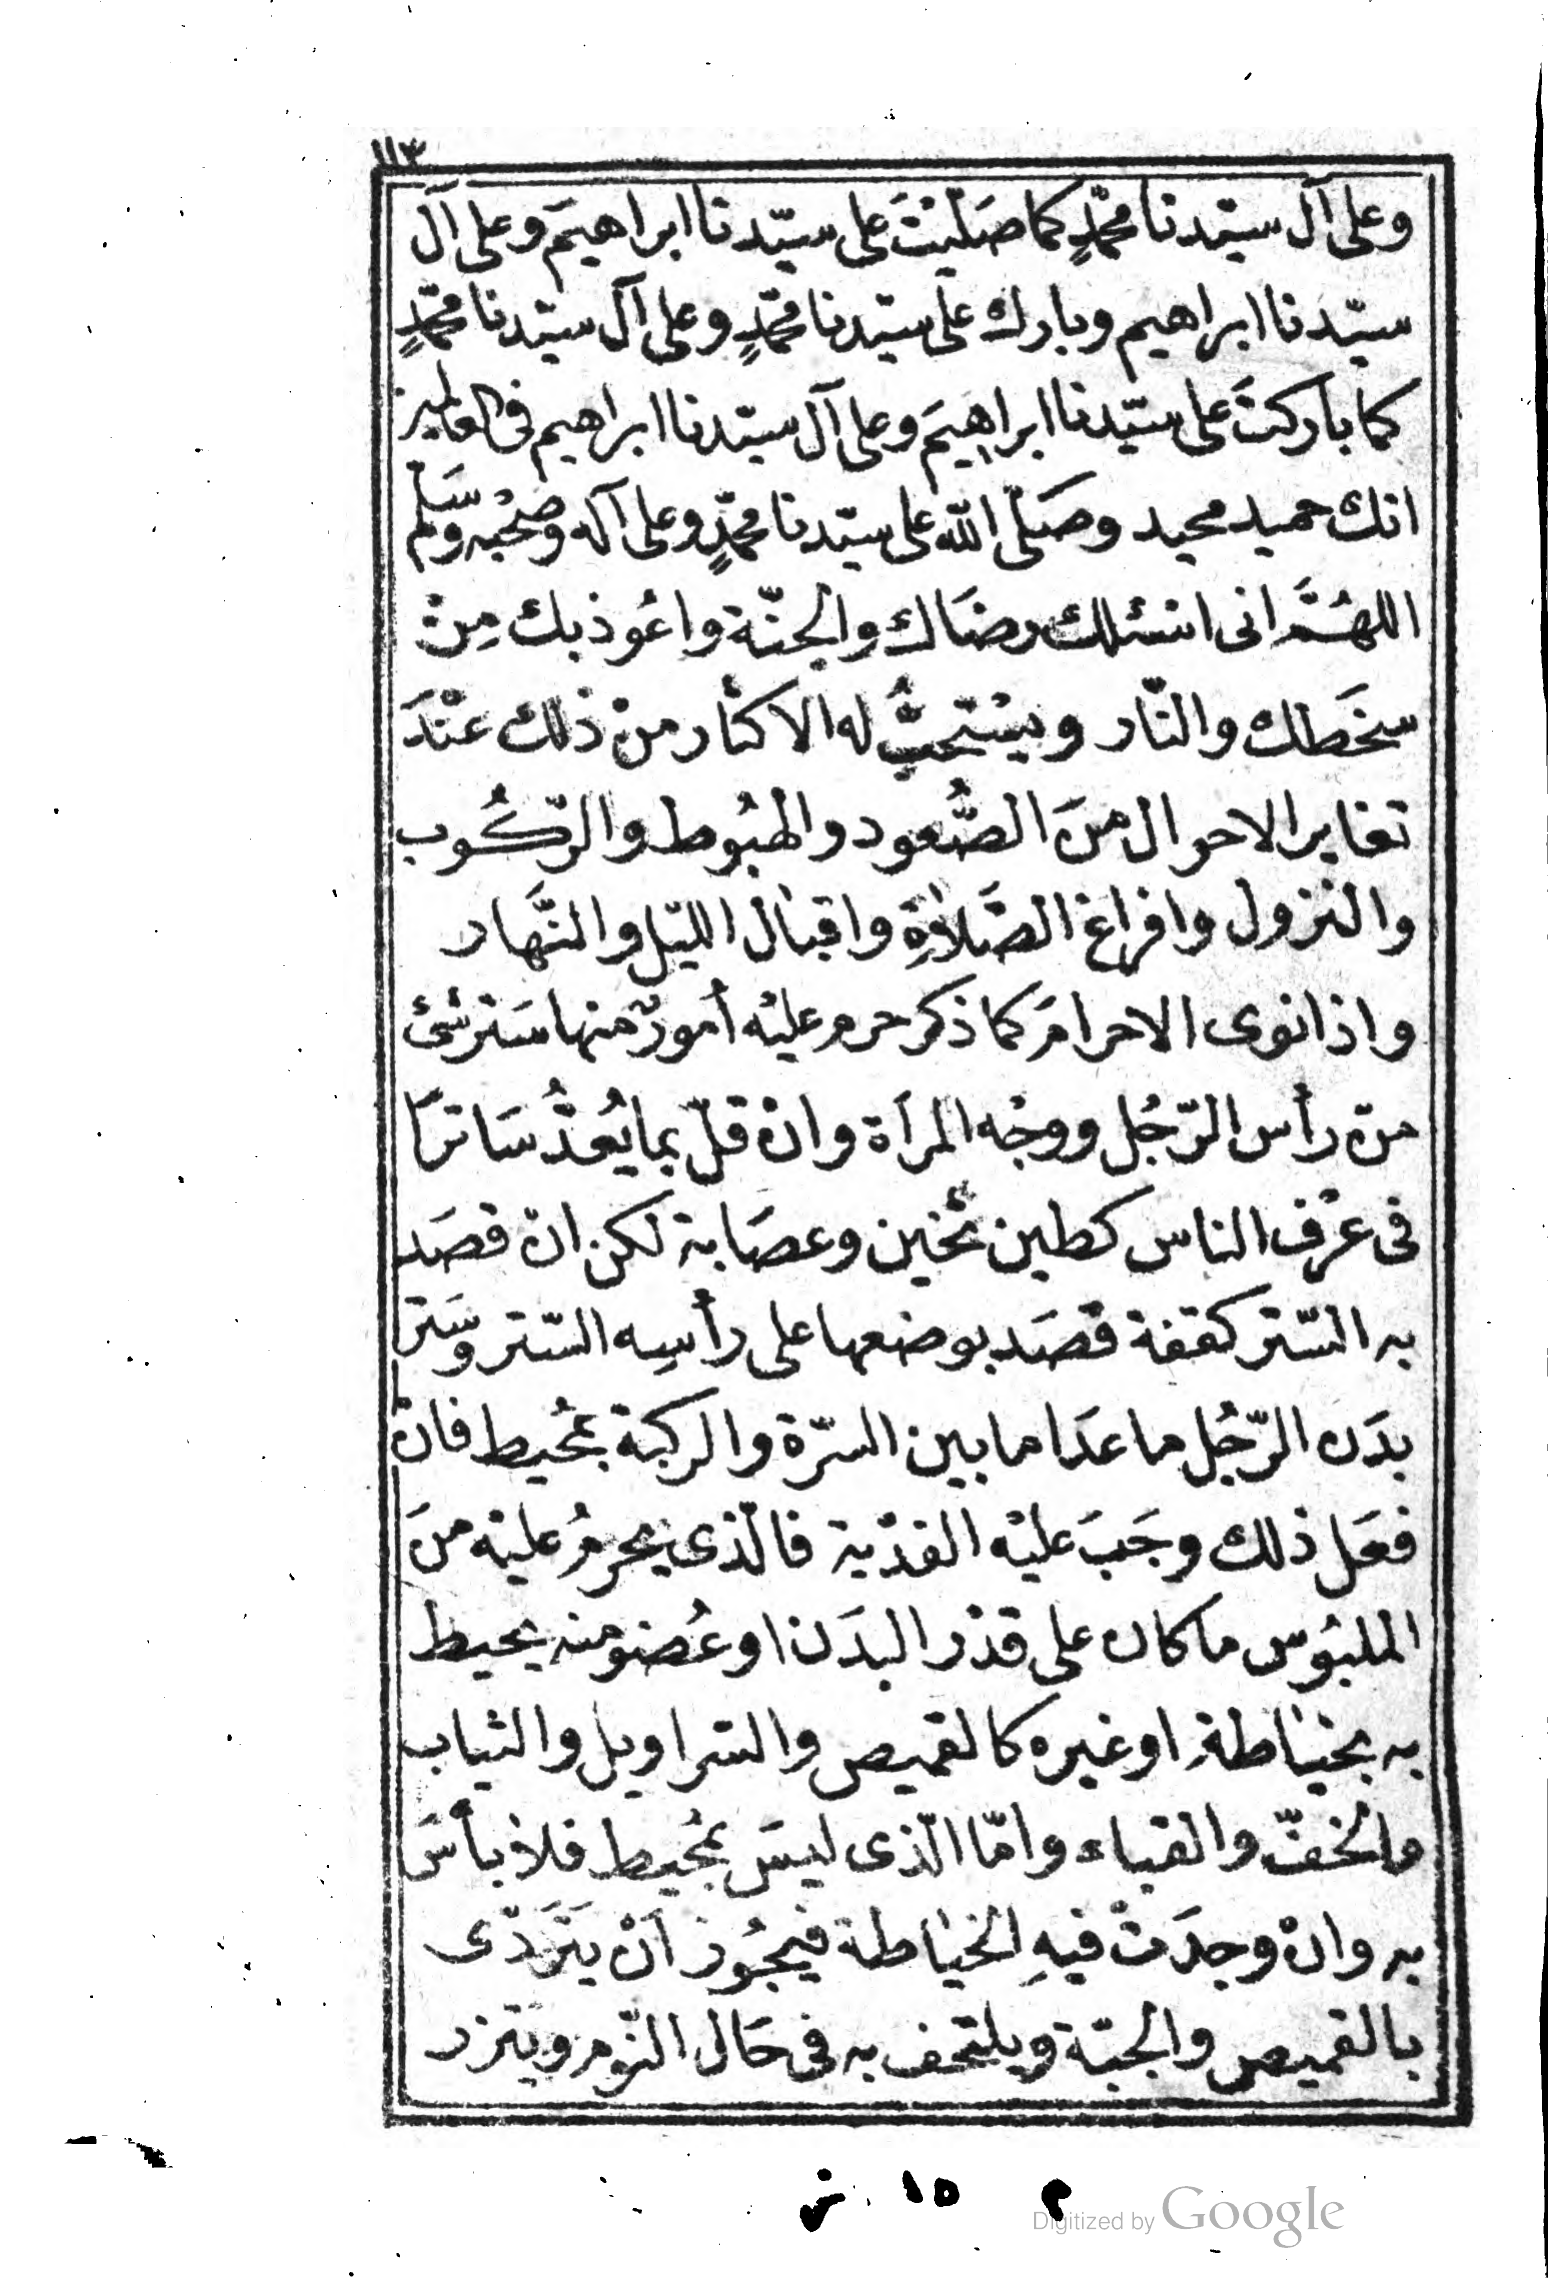 ١١٣
وعلى آل سيّدنا محمّدٍ كما صَلّيْتَ على سيّدنا ابراهيَم وعلى آل
سيّدنا ابراهيم وبارك على سيّدنا محمّدٍ وعلى آل سيّدنا محمّدٍ
كما باركتَ على سيّدنا ابراهِيَم وعلى آل سيّدنا ابراهيم فى العالمين
انك حميد مجيد وصَلّى الله على سيّدنا محمّدٍ وعلى آله وصَحْبه وسَلّم
اللهُمَّ انى اسْئلك رضَاك والجنّة واعُوذ بك مِنْ
سخَطك والنّار ويسْتحبُّ له الاكثار منْ ذلك عنْدَ
تغاير الاحوال منَ الصُّعود والهبُوط والرّكُوب
والنزول وافراغ الصَّلاةِ واقبال الليْل والنَّهار
واذا نوى الاحرامَ كما ذكر حرم عليْه أمورٌ منها سَتر شئ
منْ رأس الرّجُل ووجْه المرأة وانْ قلّ بما يُعدُّ سَاترًا
فى عرْف الناس كطين ثخين وعصَابة لكن انْ قصَد
به السّتر كقفة قصَد بوضعها على رأسِه السّتر وسَتر
بدَن الرّجُل ما عدَا ما بين السّرّة والركبة بمُحيط فانْ
فعَل ذلك وجَبَ عليْه الفدْية فالّذى يحرمُ عليْه منَ
الملبُوس ما كان على قدْر البدَن او عُضو منه يحيط
به بخياطةٍ او غيره كالقميص والسّراويل والثياب
والخفّ والقباء وامّا الّذى ليسَ بمُحيط فلا بأسَ
به وانْ وجدَتْ فيهِ الخياطة فيجُوز أنْ يَتَرَدّى
بالقميص والجبّة ويلتحف به فى حَال النّوم ويتزر
م ١٥
Digitized by Google